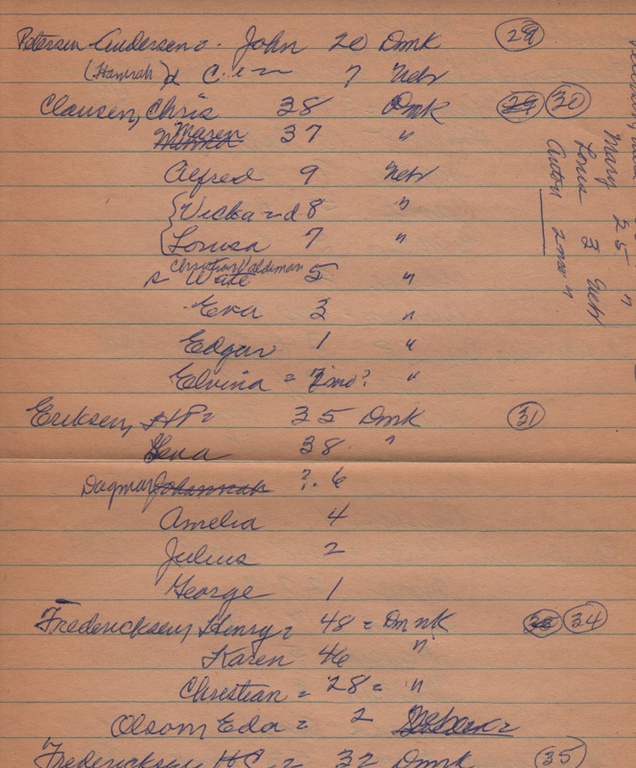 Petersen Andersen = John 20 Dmk 29
(Hannah) d 7 Nebr
Clausen, Chris 38 Dmk 29 30
Maren 37 "
Alfred 9 Nebr
Vicka = d 8 "
Louisa 7 "
Christian Valdiman
s Walte 5 "
Eva 3 "
Edgar 1 "
Elvina = 7 mo? "
Eriksen, HP = 35 Dmk 31
Lena 38 "
Dagmar Johannah ? 6
Amelia 4
Julius 2
George 1
Fredericksen, Henry = 48 = Dmnk 34
Karen 46 "
Christian = 28 = "
Olsom Eda = 2
Fredericksen HC = 32 Dmk 35
Mary 25 "
Louis 3 Nebr
Anton 2 mo "